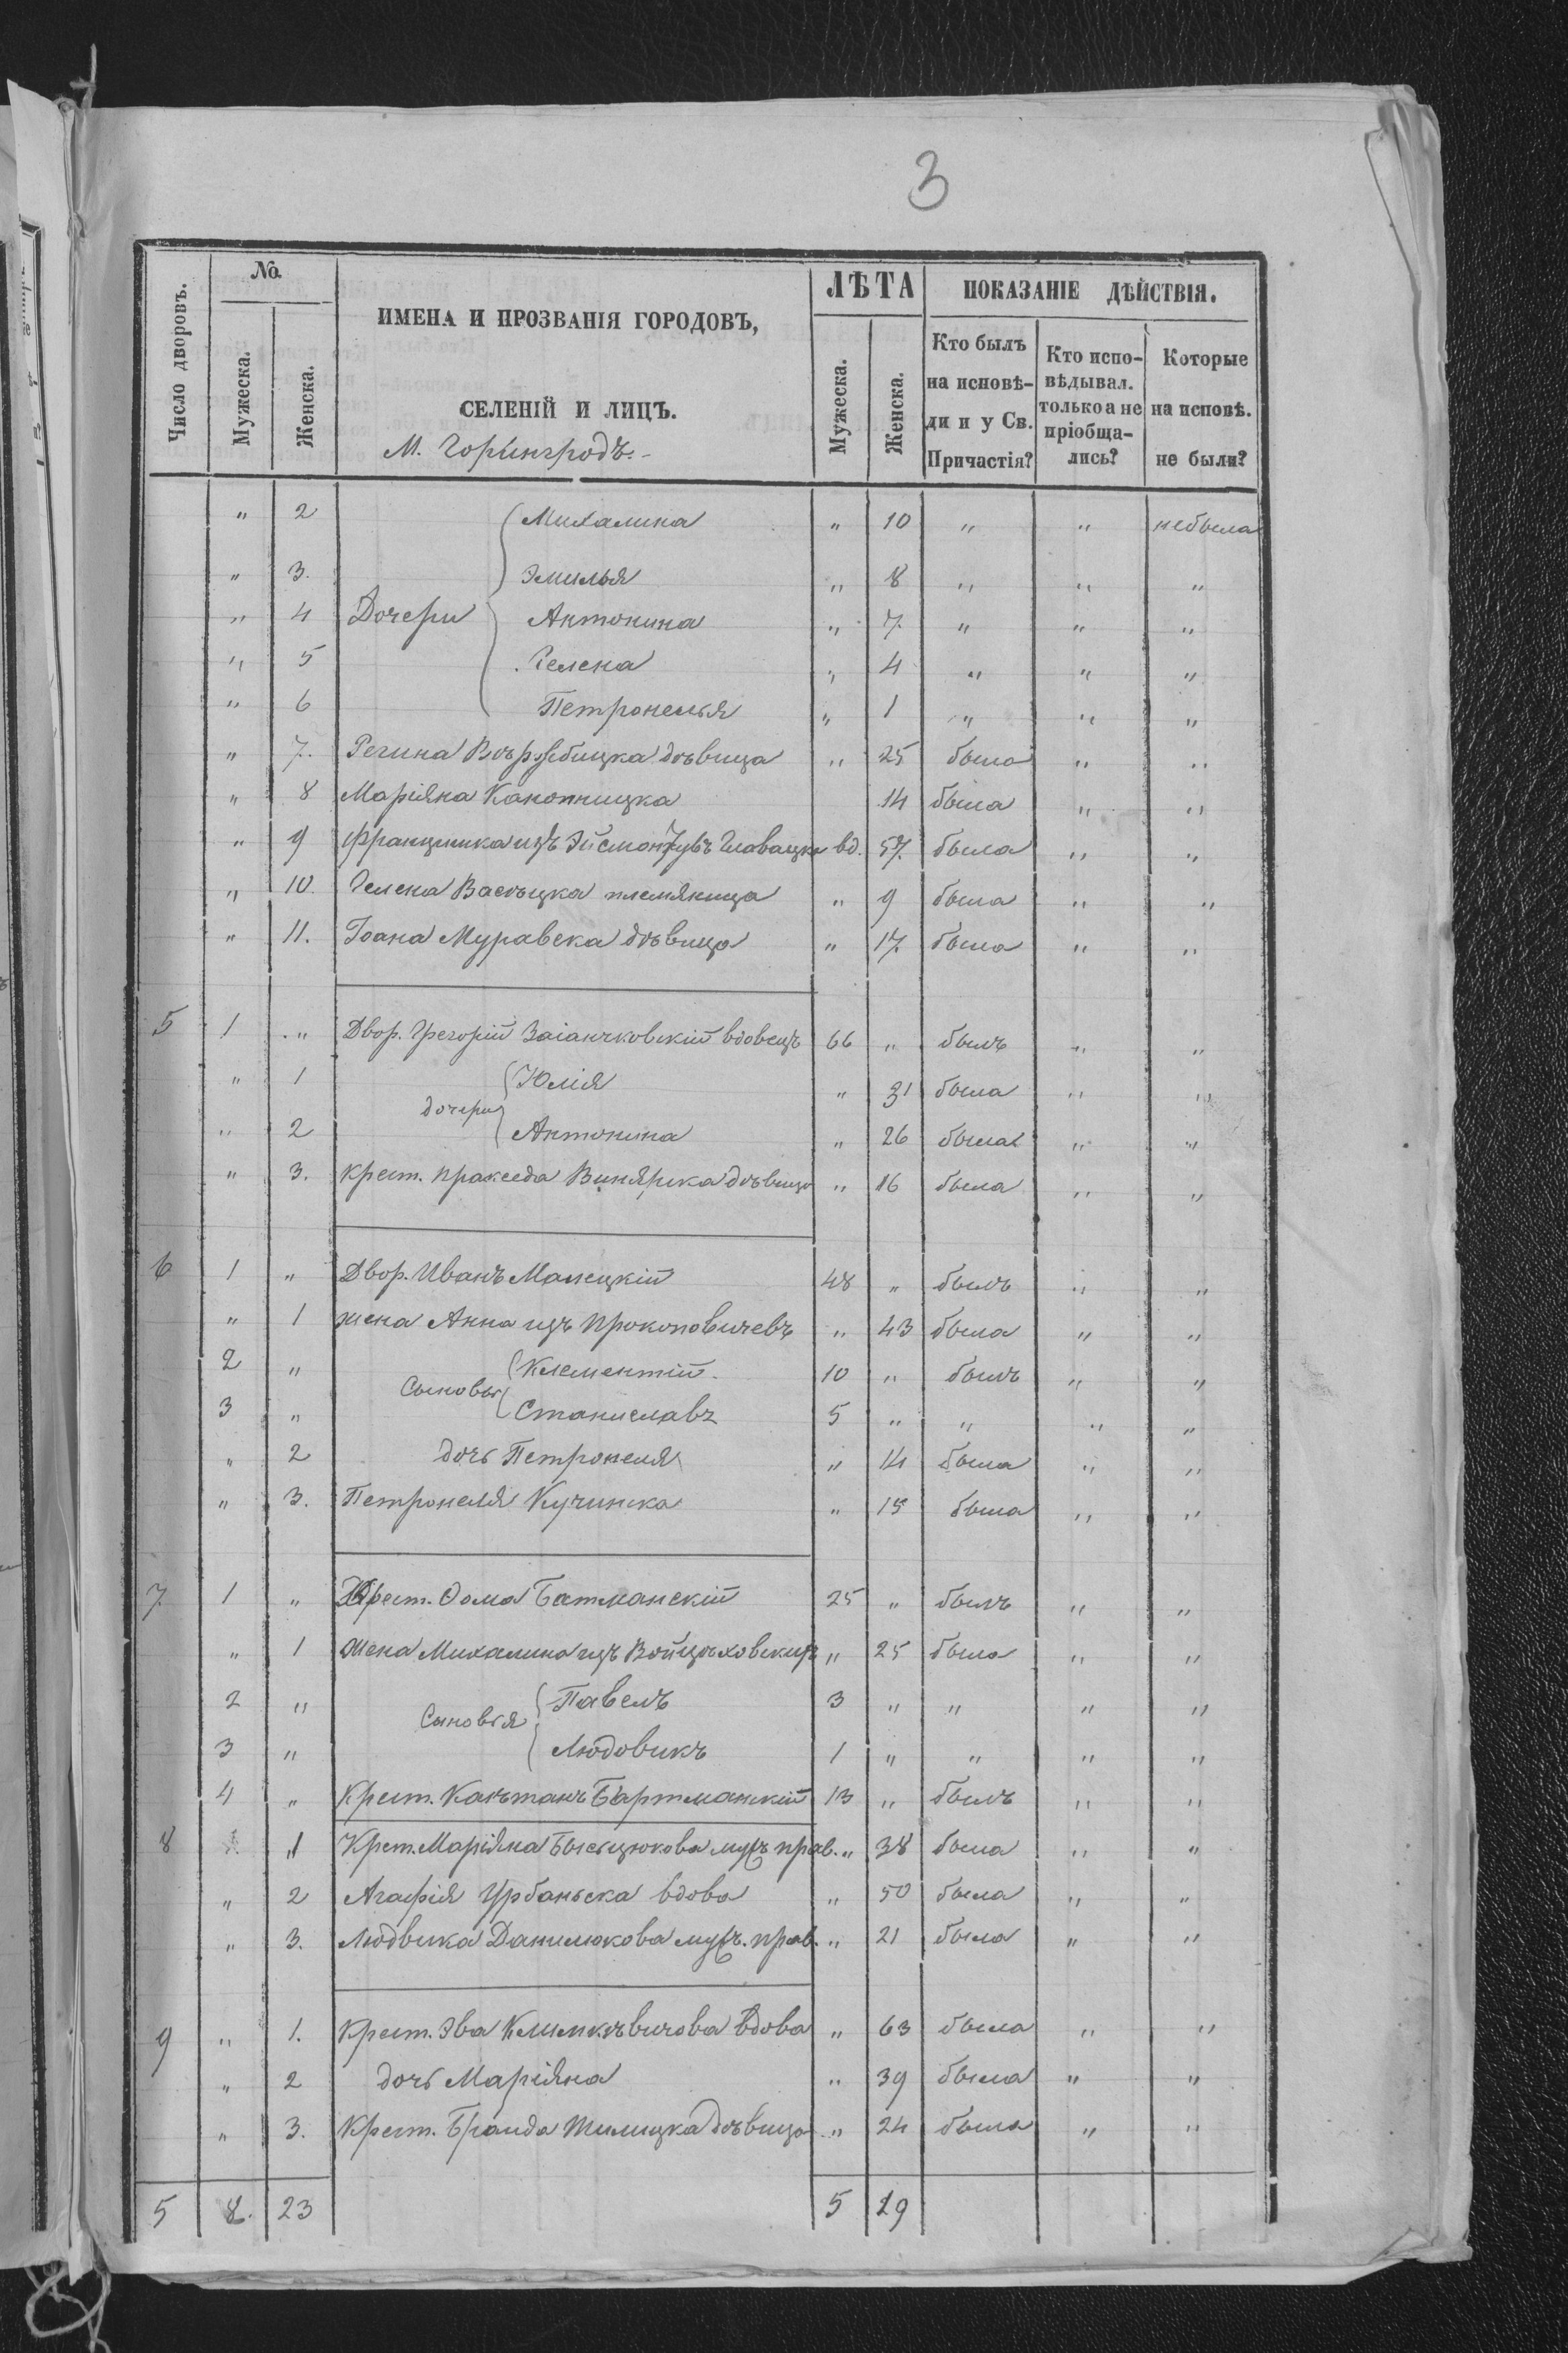 3
Число дворовъ. | № | ИМЕНА И ПРОЗВАНІЯ ГОРОДОВЪ, | ЛѢТА | ПОКАЗАНІЕ ДѢЙСТВІЯ.
Мужеска. | Женска. | СЕЛЕНІЙ И ЛИЦЪ. | Мужеска. | Женска. | Кто былъ на исповѣди и у Св. Причастія? | Кто исповѣдывал. только а не пріобщались? | Которые на исповѣ. не были?
М. Горингродъ.
" 2 Михалина " 10 " " небыла
" 3. Эмилья " 8 " " "
" 4 Дочери Антонина " 7 " " "
" 5 Гелена " 4 " " "
" 6 Петронелья " 1 " " "
" 7. Регина Вържбицка дѣвица " 25 была " "
" 8 Маріяна Канонницка 14 была " "
" 9 Францишка изъ Эйсмонтувъ Главацка вд. 57. была " "
" 10. Гелена племяница " 9 была " "
" 11. Іоана Муравска дѣвица " 17. была " "
5 1 " Двор. Грегорій Заіанчковскій вдовецъ 66 " былъ " "
" 1 Юлія " 31 была " "
дочери
" 2 Антонина " 26 была " "
" 3. крест. Пракседа Винярска дѣвица " 16 была " "
6 1 " Двор. Иванъ Малецкій 48 " былъ " "
" 1 жена Анна изъ Прокоповичевъ " 43 была " "
2 " Клементій. 10 " былъ " "
Сыновья
3 " Станиславъ 5 " " " "
" 2 дочь Петронеля " 14 была " "
" 3. Петронеля Кучинска " 15 была " "
7. 1 " Крест. Ѳома Батманскій 25 " былъ " "
" 1 Жена Михалина изъ Войцѣховскихъ " 25 была " "
2 " Павелъ 3 " " " "
Сыновья
3 " Людовикъ 1 " " " "
4 " Крест. Каѣтанъ Бартманскій 13 " былъ " "
8 1 Крест. Маріяна мужъ прав. " 38 была " "
" 2 Агафія Урбаньска вдова " 50 была " "
" 3. Людвика Данилюкова мужъ. прав. " 21 была " "
9 " 1. Крест. Эва Климкѣвичова вдова " 63 была " "
" 2 дочь Маріяна " 39 была " "
" 3. Крест. дѣвица " 24 была " "
5 8. 23 5 29